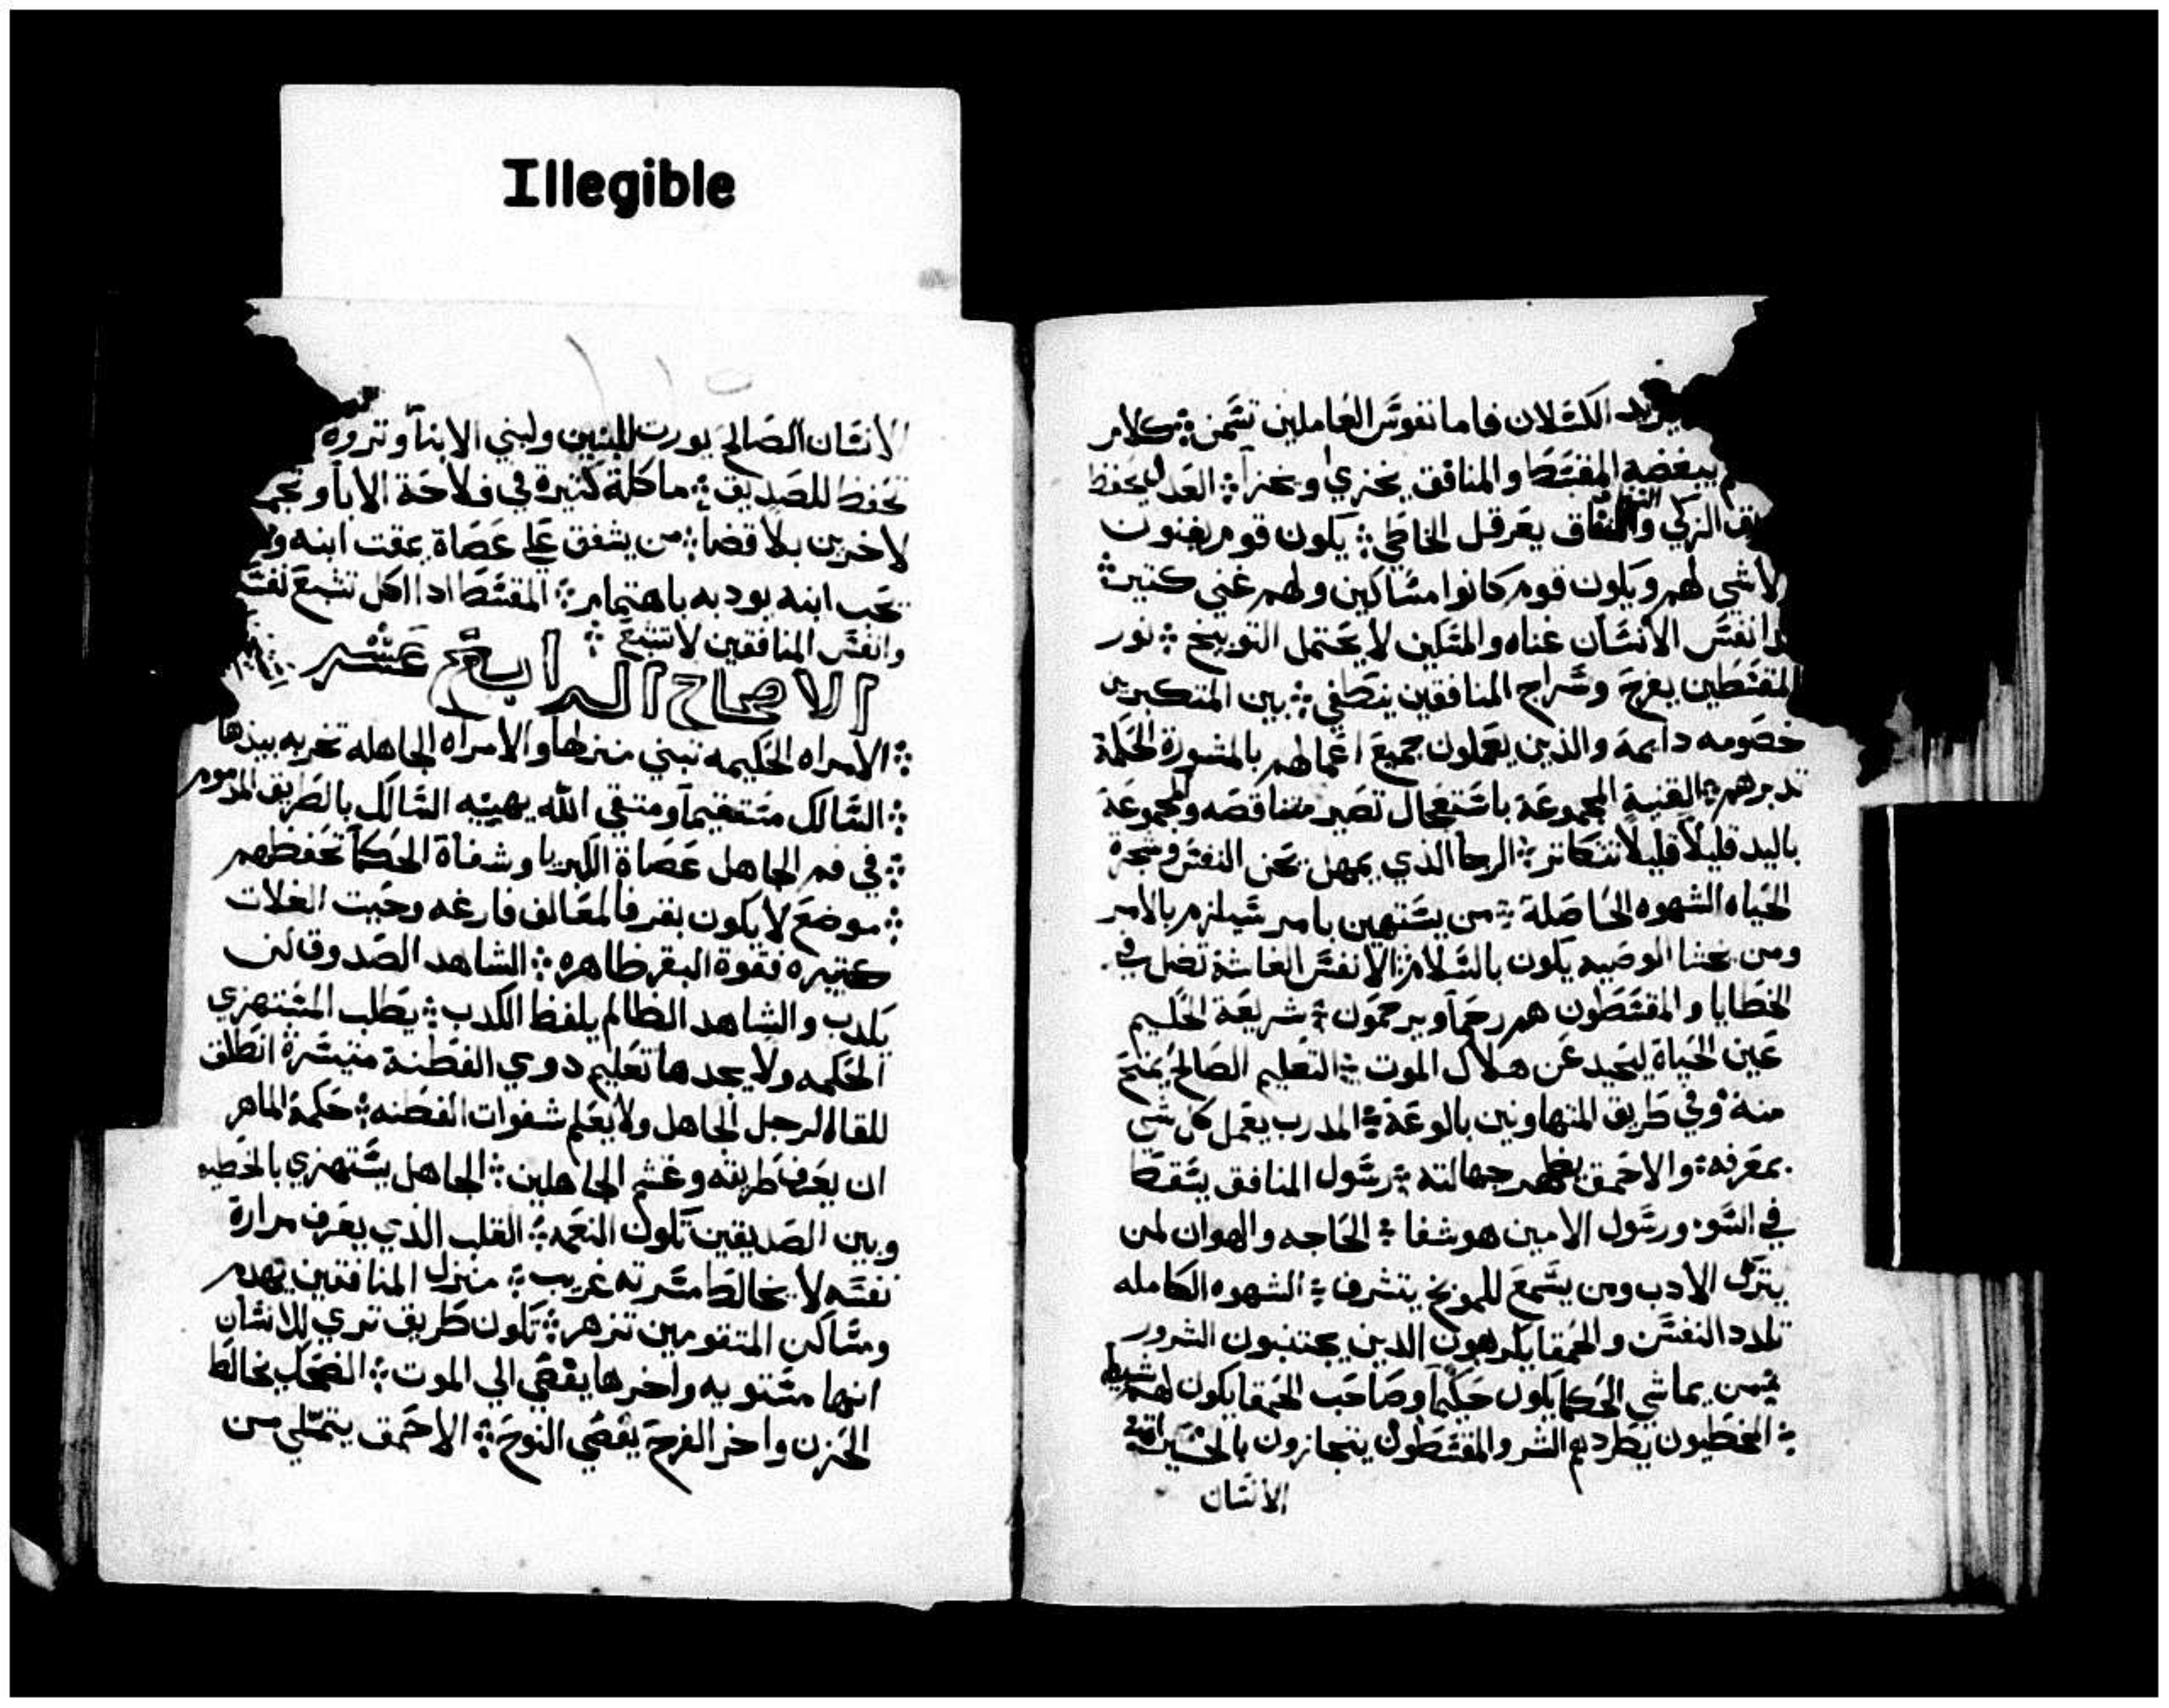 Illegible
يريد الكسَلان فاما نفوسَ العَاملين تسَمن ܀ كلام
يبغضه المقسَط والمنافق يخزي ويخزا ܀ العَدل يحفظ
الزكي والنفاق يعَرقل الخاطي ܀ يكون قوم يغنون
لاشي لهم ويكون قوم كانوا مسَاكين ولهم غني كتير ܀
نفسَ الانسَان غناه والمسَكين لا يحَتمل التوبيخ ܀ نور
المقسَطين يفرحَ وسَراج المنافقين ينطفي ܀ بين المتكبرين
خصَومه دايمة والذين يعَملون جميعَ اعَمالهم بالمشورة الحَكمة
تدبرهم ܀ القنية المجموعَة باسَتعَجال تصَير متناقصَه والمجموعَة
باليد قليلاً قليلاً تتكاتر ܀ الرجا الذي يمهل يحَزن النفسَ وشجرة
الحَياه الشهوه الحَاصَلة ܀ من يسَتهين بامر سَيلزم بالامر
ومن يخشا الوصَيه يكون بالسَلام ܀ الانفسَ الغاشة تضل في
الخطايا والمقسَطون هم رحَما ويرحمَون ܀ شريعَة الحَكيم
عَين الحَياة ليحَيد عَن هلاك الموت ܀ التعَليم الصَالح يمنحَ
منة وفي طَريق المتهاونين بالوعَة ܀ المدرب يعَمل كل شي
بمعَرفه ܀ والاحَمق يظهر جهالته ܀ رسَول المنافق يسَقط
في السَو ورسَول الامين هو شفا ܀ الحَاجه والهوان لمن
يترك الادب ومن يسَمعَ للموبخ يتشرف ܀ الشهوه الكامله
تلدد النفسَ والحَمقا يكرهون الدين يجتنبون الشرور
܀ من يماشي الحَكما يكون حَكيماً وصَاحَب الحَمقا يكون لهم شبيه
܀ المخطيون يطَردهم الشر والمقسَطَون يتجازون بالخَيرات
الانسَان
الانسَان الصَالح يورت للبنين ولبني الابناً وتروه
تحَفظ للصَديق ܀ ماكلة كتيرة في فلاحَة الاباً وتجمع
لاخرين بلا قضا ܀ من يشفق عَلي عَصَاة يمقت ابنه
يحَب ابنه يودبه باهتمام ܀ المقسَط ادا اكل تشبعَ نفسَه
وانفسَ المنافقين لا تشبعَ ܀
الاصحاح الرابع عشر
܀ الامراه الحَكيمه تبني منزلها والامراه الجاهله تخربه بيدها
܀ السَالك مسَتقيماً ومتقي الله يهينه السَالك بالطَريق المذموم
܀ في فم الجاهل عَصَاة الكبريا وشفاة الحَكماً تحَفظهم
܀ موضعَ لا يكون بقر فالمعَالف فارغه وحَيت الغلات
كتيره فقوة البقر ظاهره ܀ الشاهد الصَدوق لن
يكدب والشاهد الظالم يلفظ الكدب ܀ يطَلب المسَتهزي
الحَكمه ولا يجدها تعَليم دوي الفطَنة متيسَرة انطَلق
للقا الرجل الجاهل ولا يعَلم شفوات الفطَنه ܀ حَكمة الماهر
ان يعَرف طَريقه وغش الجاهلين ܀ الجاهل يسَتهزي بالخطَيه
وبين الصَديقين تكون النعَمه ܀ القلب الذي يعَرف مرارة
نفسَه لا يخالط مسَرته غريب ܀ منزل المنافقين يهدم
ومسَاكن المتقومين تزهر ܀ تكون طَريق تري للانسَان
انها مسَتويه واخرها يفضَي الي الموت ܀ الضَحَك يخالط
الحَزن واخر الفرحَ يفضَي النوحَ ܀ الاحَمق يتملي من